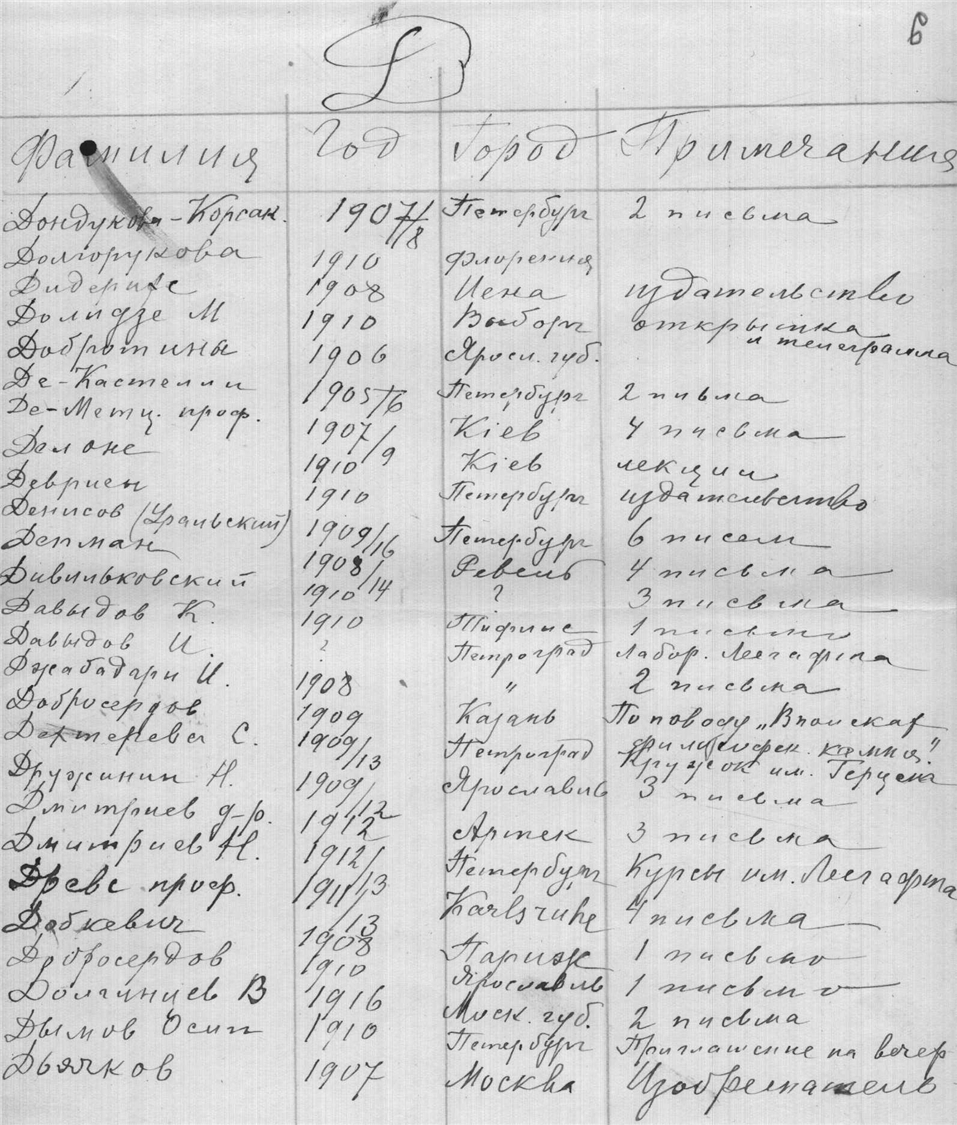 Д
6
Фамилия Год Город Примечания
Дондукова-Корсак. 1907/8 Петербург 2 письма
Долгорукова 1910 Флоренция
Дидерихс 1908 Иена издательство
Долидзе М 1910 Выборг открытка и телеграмма
Добротины 1906 Яросл. губ.
Де-Кастелли 1905/6 Петербург 2 письма
Де-Метц. проф. 1907/9 Кіев 4 письма
Делоне 1910 Кіев лекции
Девриен 1910 Петербург издательство
Денисов (Уральский) 1909/16 Петербург 6 писем
Депман 1908/14 Ревель 4 письма
Дивильковский 1910 ? 3 письма
Давыдов К. 1910 Тифлис 1 письмо
Давыдов И. ? Петроград лабор. Лесгафта
Джабадари И. 1908 " 2 письма
Добросердов 1909 Казань По поводу „В поисках философск. камня"
Дехтерева С. 1909/13 Петроград Кружок им. Герцена
Дружинин Н. 1909/12 Ярославль 3 письма
Дмитриев д-р. 1912 Артек 3 письма
Дмитриев Н. 1912/13 Петербург Курсы им. Лесгафта
Древс проф. 1911/13 Karlsruhe 4 письма
Дебкевич 1908 Париж 1 письмо
Добросердов 1910 Ярославль 1 письмо
Долганцев В 1916 Моск. губ. 2 письма
Дымов Осип 1910 Петербург Приглашение на вечер
Дьячков 1907 Москва Изобретатель